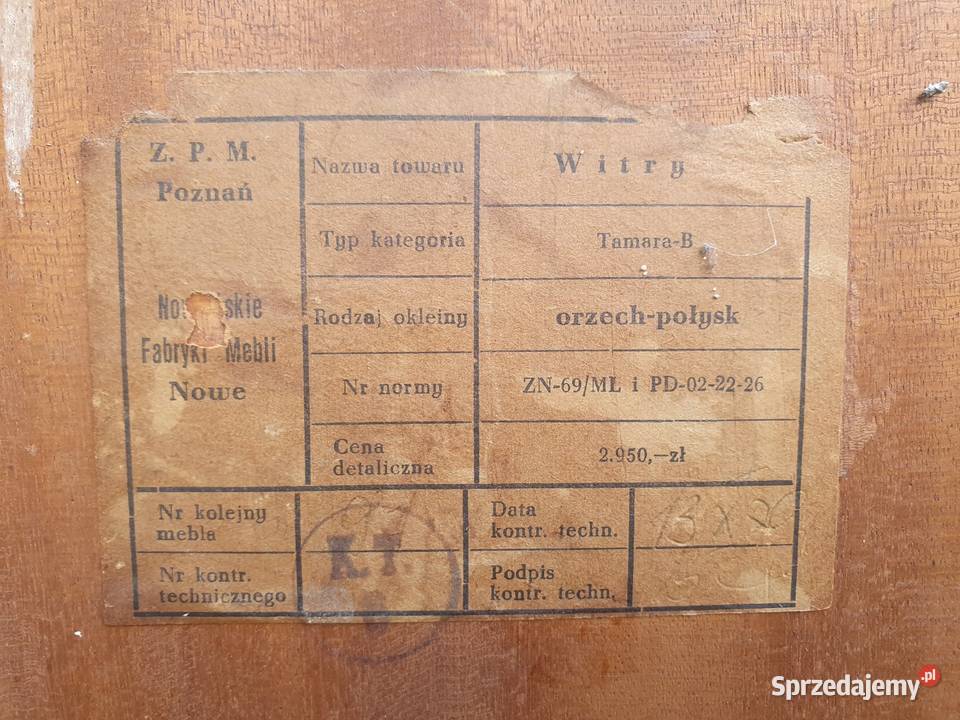 Z. P. M.
Poznań
Fabryki Mebli
Nowe
Nazwa towaru
Witry
Typ kategoria
Tamara-B
Rodzaj okleiny
orzech-połysk
Nr normy
ZN-69/MŁ i PD-02-22-26
Cena
detaliczna
2.950,—zł
Nr kolejny
mebla
Data
kontr. techn.
Nr kontr.
technicznego
K.T.
Podpis
kontr. techn.
Sprzedajemy.pl